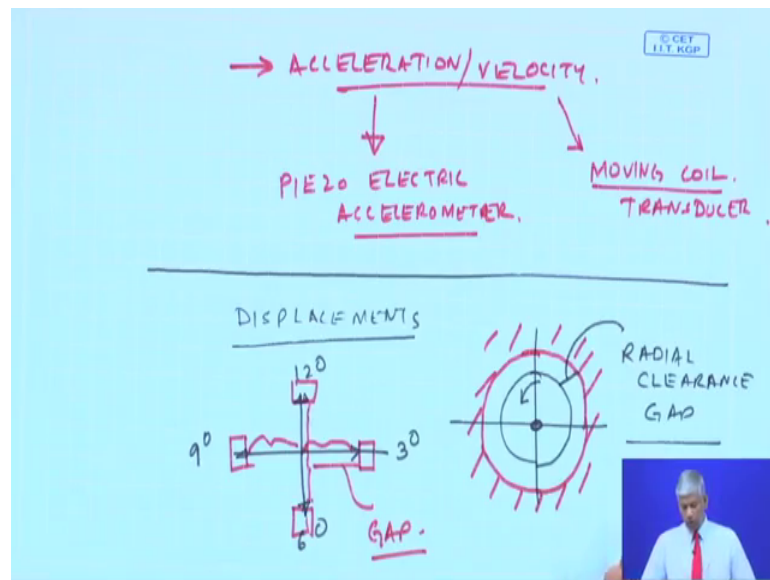 © CET
I.I.T. KGP
→ ACCELERATION/VELOCITY.
PIEZO ELECTRIC
ACCELEROMETER.
MOVING COIL.
TRANSDUCER.
DISPLACEMENTS
12⁰
9⁰
3⁰
6⁰
GAP.
RADIAL
CLEARANCE
GAP